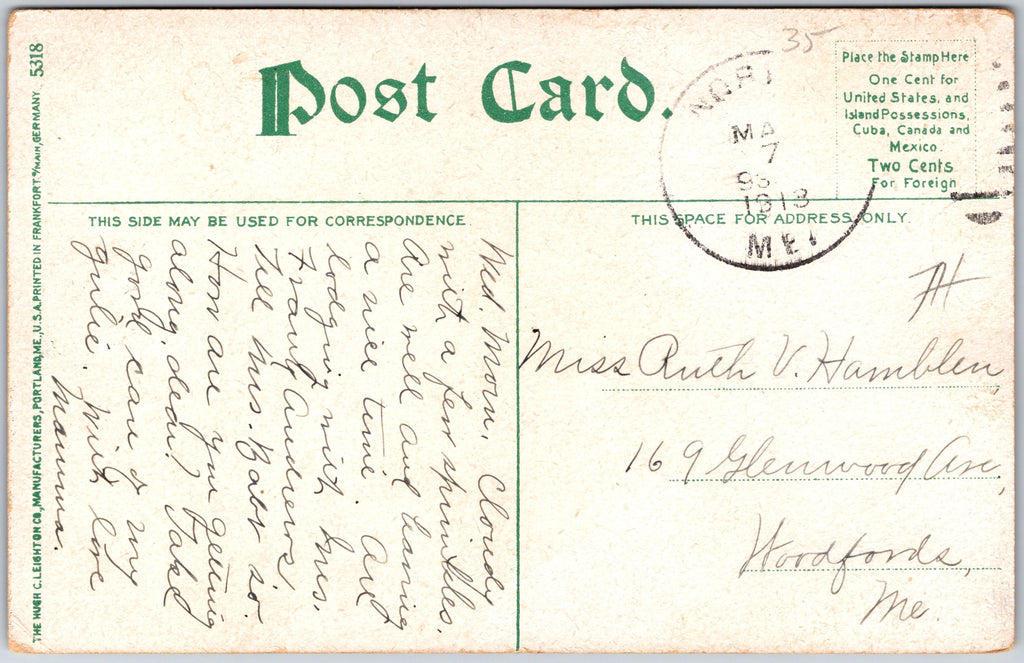 Post Card.
35
Place the Stamp Here
One Cent for
United States, and
Island Possessions,
Cuba, Canada and
Mexico.
Two Cents
For Foreign
NORT
MA
7
1913
ME.
THIS SIDE MAY BE USED FOR CORRESPONDENCE.
THIS SPACE FOR ADDRESS ONLY.
Wed. Morn. Cloudy
with a few sprinkles.
Are well and having
a nice time. Are
lodging with Mrs.
Frank Andrews,
Tell Mrs. so.
How are you getting
along, dear? Take
good care of my
girlie. With love
Mamma.
Miss Ruth V. Hamblen,
169 Glenwood Ave,
Woodfords,
Me.
THE HUGH C. LEIGHTON CO., MANUFACTURERS, PORTLAND, ME., U.S.A. PRINTED IN FRANKFORT o/MAIN, GERMANY 5318